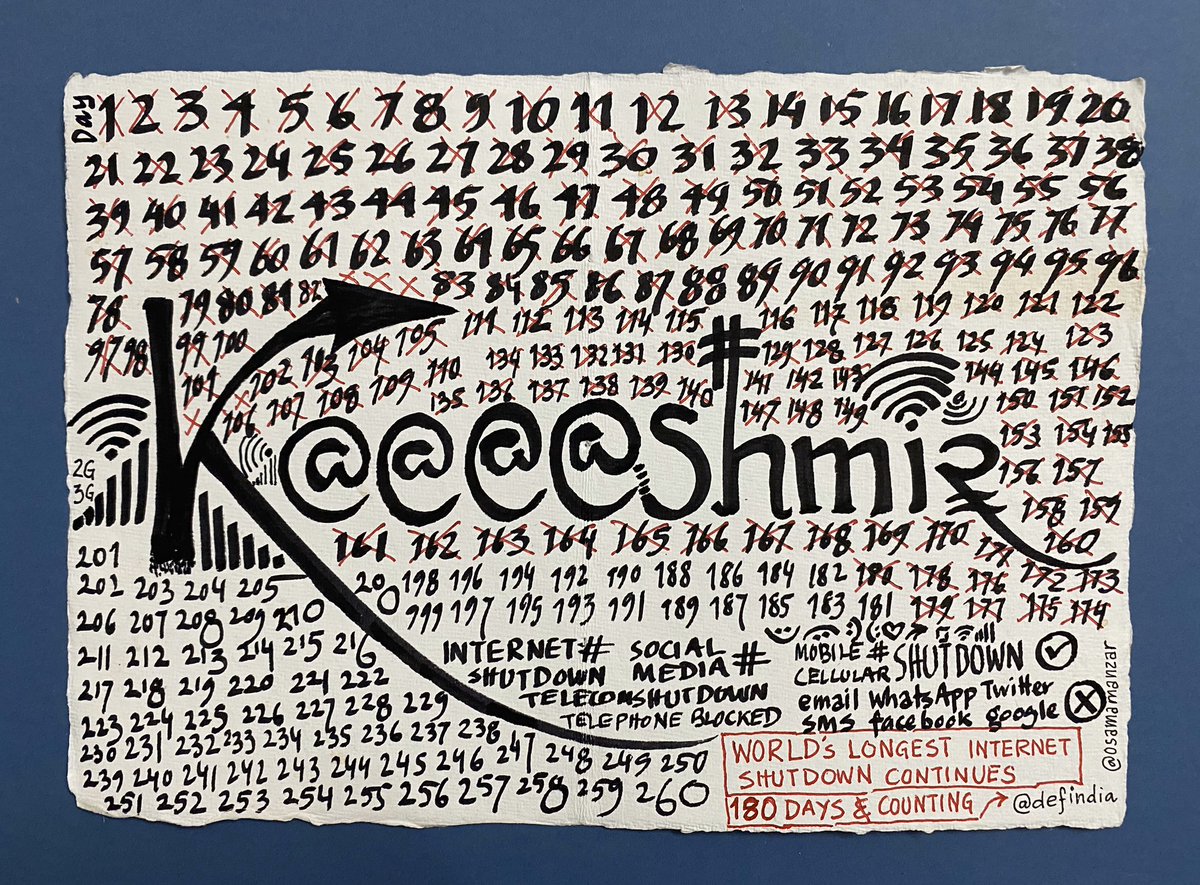 Day 1 2 3 4 5 6 7 8 9 10 11 12 13 14 15 16 17 18 19 20
21 22 23 24 25 26 27 28 29 30 31 32 33 34 35 36 37 38
39 40 41 42 43 44 45 46 47 48 49 50 51 52 53 54 55 56
57 58 59 60 61 62 63 64 65 66 67 68 69 70 71 72 73 74 75 76 77
78 79 80 81 82 83 84 85 86 87 88 89 90 91 92 93 94 95 96
97 98 99 100 101 102 103 104 105 111 112 113 114 115 116 117 118 119 120 121 122
134 133 132 131 130 129 128 127 126 125 124 123
106 107 108 109 110 135 136 137 138 139 140 141 142 143 144 145 146
147 148 149 150 151 152
K@@@@shmir
#
2G
3G
153 154 155
156 157
158 159
160
161 162 163 164 165 166 167 168 169 170 171 172 173
201
202 203 204 205 200 198 196 194 192 190 188 186 184 182 180 178 176
206 207 208 209 210 999 197 195 193 191 189 187 185 183 181 179 177 175 174
211 212 213 214 215 216
217 218 219 220 221 222
223 224 225 226 227 228 229
230 231 232 233 234 235 236 237 238
239 240 241 242 243 244 245 246 247 248 249 250
251 252 253 254 255 256 257 258 259 260
INTERNET #
SHUTDOWN
SOCIAL
MEDIA #
TELECOM SHUTDOWN
TELEPHONE BLOCKED
MOBILE #
CELLULAR SHUTDOWN
email WhatsApp Twitter
SMS facebook google
WORLD's LONGEST INTERNET
SHUTDOWN CONTINUES
180 DAYS & COUNTING
@defindia
@osamamanzar